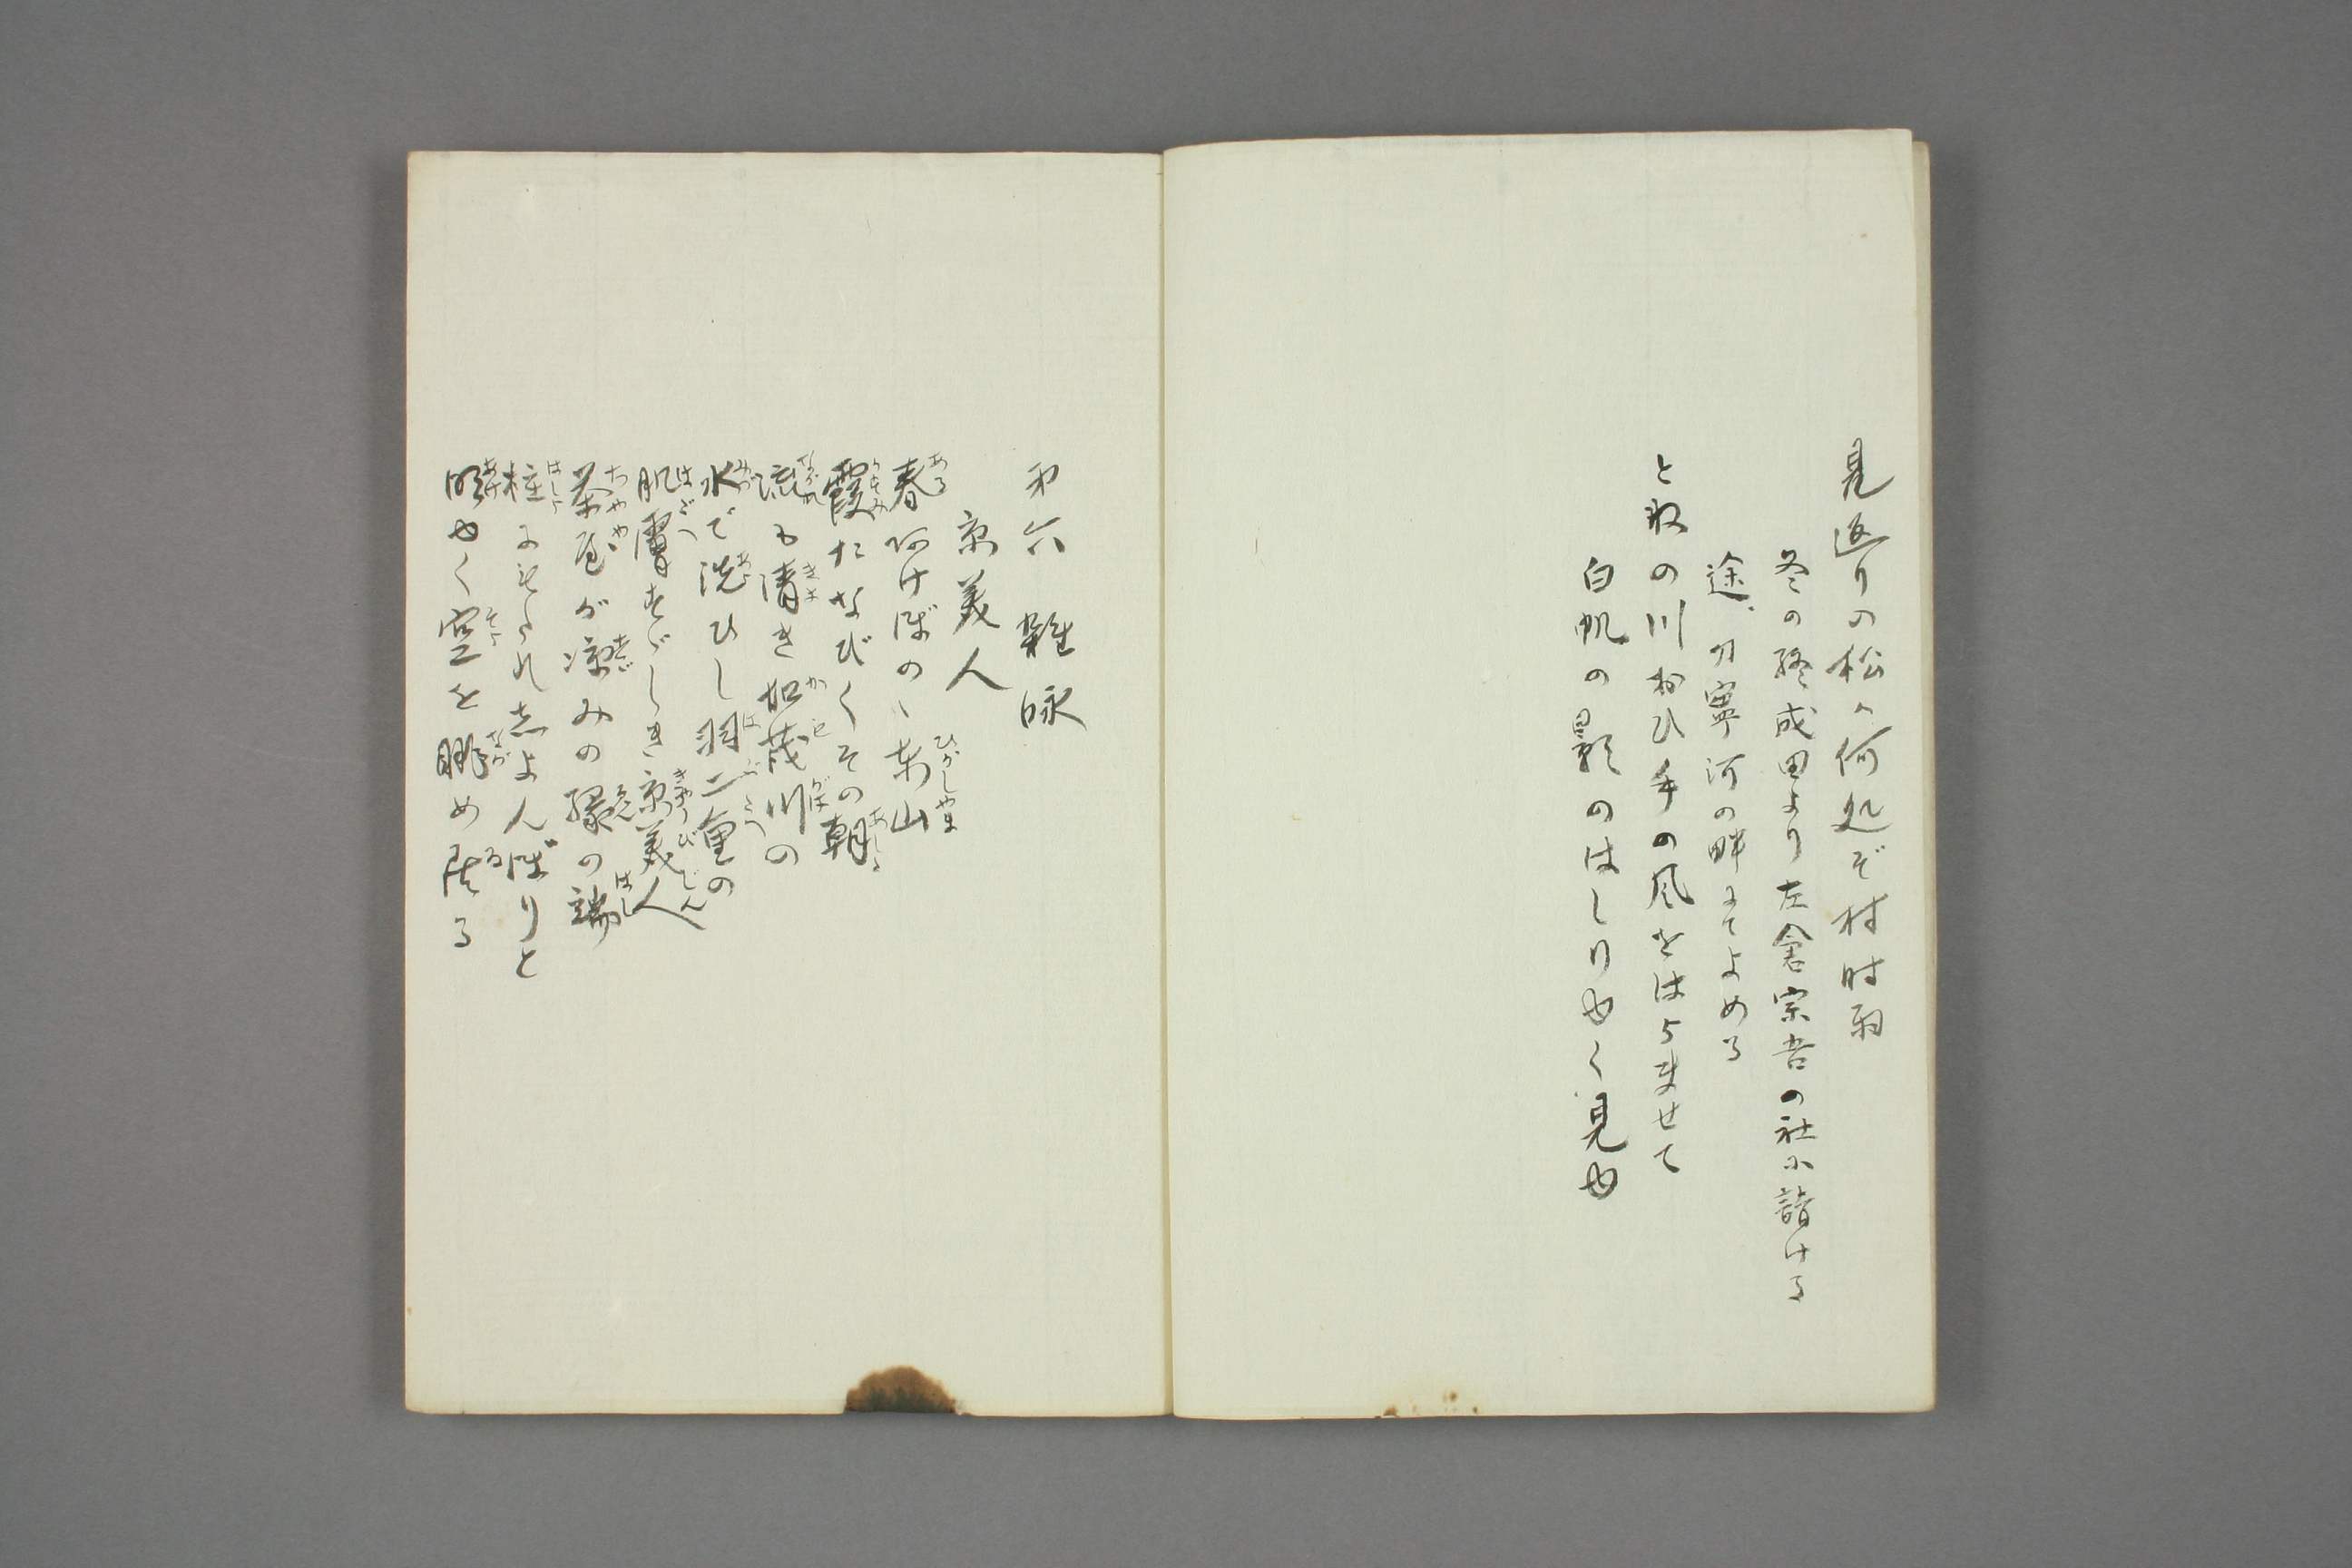 見返りの松ハ何処ぞ村時雨
冬の終成田より左倉宗吾の社に詣ける
途、刀寧河の畔にてよめる
とねの川おひ手の風をはらませて
白帆の影のはしりゆく見ゆ
第六 雑咏
京美人
春あけぼのゝ東山
霞たなびくその朝
流も清き加茂川の
水で洗ひし羽二重の
肌膚すゞしき京美人
茶屋が凉みの縁の端
柱にもたれしよんぼりと
明ゆく空を眺め居る